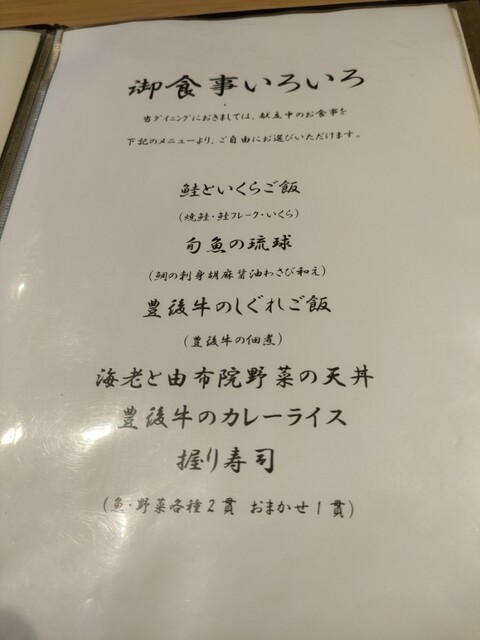 御食事いろいろ
当ダイニングにおきましては、献立中のお食事を
下記のメニューより、ご自由にお選びいただけます。
鮭といくらご飯
(焼鮭・鮭フレーク・いくら)
旬魚の琉球
(鯛の刺身胡麻醤油わさび和え)
豊後牛のしぐれご飯
(豊後牛の佃煮)
海老と由布院野菜の天丼
豊後牛のカレーライス
握り寿司
(魚・野菜各種2貫 おまかせ1貫)